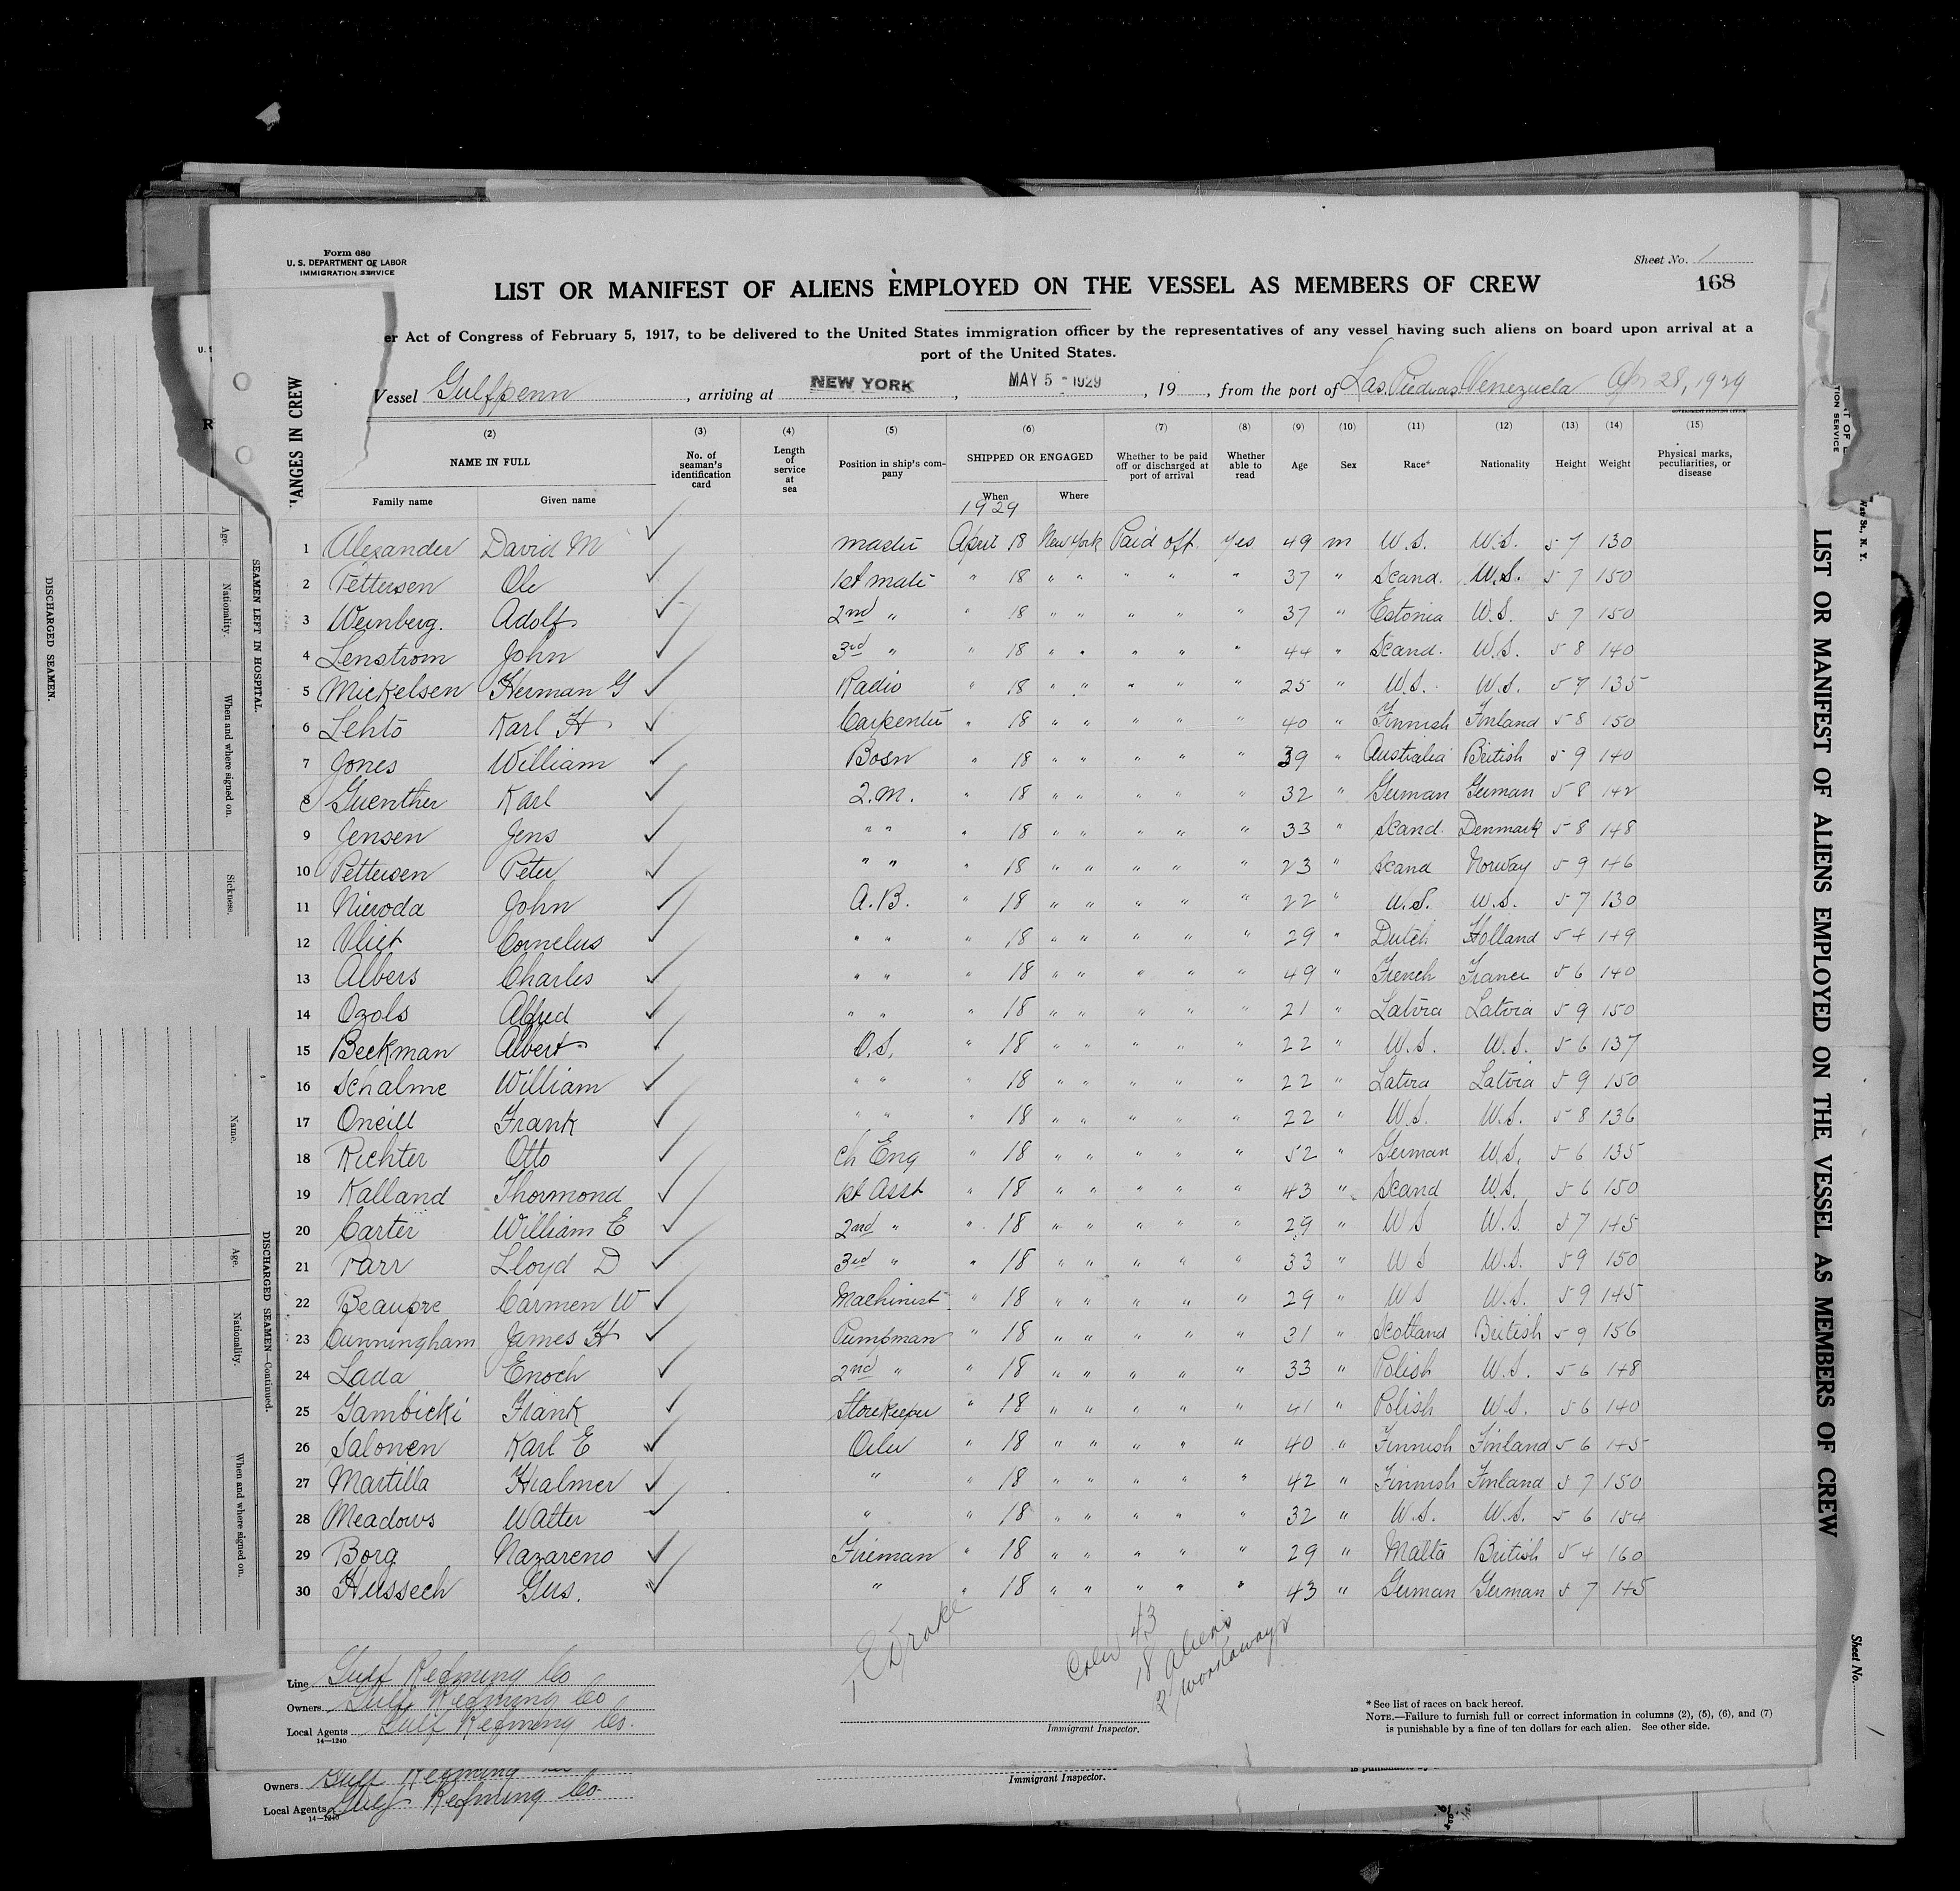 Form 680
U. S. DEPARTMENT OF LABOR
IMMIGRATION SERVICE
Sheet No. 1
LIST OR MANIFEST OF ALIENS EMPLOYED ON THE VESSEL AS MEMBERS OF CREW
168
er Act of Congress of February 5, 1917, to be delivered to the United States immigration officer by the representatives of any vessel having such aliens on board upon arrival at a
port of the United States.
Vessel Gulfpenn, arriving at NEW YORK, MAY 5 - 1929, 19, from the port of Las Piedras Venezuela Apr 28, 1929
(2) (3) (4) (5) (6) (7) (8) (9) (10) (11) (12) (13) (14) (15)
NAME IN FULL No. of seaman's identification card Length of service at sea Position in ship's company SHIPPED OR ENGAGED Whether to be paid off or discharged at port of arrival Whether able to read Age Sex Race* Nationality Height Weight Physical marks, peculiarities, or disease
Family name Given name When Where
1929
1 Alexander David M ✓ master April 18 New York Paid off Yes 49 m U.S. U.S. 5 7 130
2 Pettersen Ole ✓ 1st mate " 18 " " " " " 37 " Scand. U.S. 5 7 150
3 Weinberg. Adolf ✓ 2nd " " 18 " " " " " 37 " Estonia U.S. 5 7 150
4 Lenstrom John ✓ 3rd " " 18 " " " " " 44 " Scand. U.S. 5 8 140
5 Mickelsen Herman G ✓ Radio " 18 " " " " " 25 " U.S. U.S. 5 7 135
6 Lehto Karl H ✓ Carpenter " 18 " " " " " 40 " Finnish Finland 5 8 150
7 Jones William ✓ Bosn " 18 " " " " 39 " Australia British 5 9 140
8 Guenther Karl ✓ Q.M. " 18 " " " " " 32 " German German 5 8 142
9 Jensen Jens ✓ " " " 18 " " " " " 33 " Scand. Denmark 5 8 148
10 Pettersen Peter ✓ " " " 18 " " " " " 23 " Scand Norway 5 9 146
11 Nieroda John ✓ A.B. " 18 " " " " " 22 " U.S. U.S. 5 7 130
12 Vliet Cornelus ✓ " " " 18 " " " " " 29 " Dutch Holland 5 4 149
13 Albers Charles ✓ " " " 18 " " " " " 49 " French France 5 6 140
14 Ozols Alfred ✓ " " " 18 " " " " " 21 " Latvia Latvia 5 9 150
15 Beckman Albert ✓ O.S. " 18 " " " " " 22 " U.S. U.S. 5 6 137
16 Schalme William ✓ " " " 18 " " " " " 22 " Latvia Latvia 5 9 150
17 Oneill Frank ✓ " " " 18 " " " " " 22 " U.S. U.S. 5 8 136
18 Richter Otto ✓ Ch Eng " 18 " " " " " 52 " German U.S. 5 6 135
19 Kalland Thormond ✓ 1st Asst " 18 " " " " " 43 " Scand U.S. 5 6 150
20 Carter William E ✓ 2nd " " 18 " " " " " 29 " U S U.S. 5 7 145
21 Parr Lloyd D ✓ 3rd " " 18 " " " " " 33 " U S U.S. 5 9 150
22 Beaupre Carmen W ✓ Machinist " 18 " " " " " 29 " U S U.S. 5 9 145
23 Cunningham James H ✓ Pumpman " 18 " " " " " 31 " Scotland British 5 9 156
24 Lada Enoch ✓ 2nd " " 18 " " " " " 33 " Polish U.S. 5 6 148
25 Gambicki Frank ✓ Storekeeper " 18 " " " " " 41 " Polish U.S. 5 6 140
26 Salonen Karl E ✓ Oiler " 18 " " " " " 40 " Finnish Finland 5 6 145
27 Martilla Hialmer ✓ " 18 " " " " " 42 " Finnish Finland 5 7 150
28 Meadows Walter ✓ " " 18 " " " " " 32 " U.S. U.S. 5 6 154
29 Borg Nazareno ✓ Fireman " 18 " " " " " 29 " Malta British 5 4 160
30 Hussech Gus. ✓ " " 18 " " " " " 43 " German German 5 7 145
E Drake
Crew 43
18 aliens
2 workaways
Line Gulf Refining Co
Owners Gulf Refining Co
Local Agents Gulf Refining Co.
14—1240
Immigrant Inspector.
* See list of races on back hereof.
NOTE.—Failure to furnish full or correct information in columns (2), (5), (6), and (7)
is punishable by a fine of ten dollars for each alien. See other side.
Owners Gulf Refining Co
Local Agents Gulf Refining Co
14—1240
Immigrant Inspector.
ANGES IN CREW
SEAMEN LEFT IN HOSPITAL.
Age.
Nationality.
When and where signed on.
Sickness.
DISCHARGED SEAMEN.
Name.
Age.
Nationality.
When and where signed on.
DISCHARGED SEAMEN—Continued.
LIST OR MANIFEST OF ALIENS EMPLOYED ON THE VESSEL AS MEMBERS OF CREW
TION SERVICE
St., N. Y.
Sheet No. 1